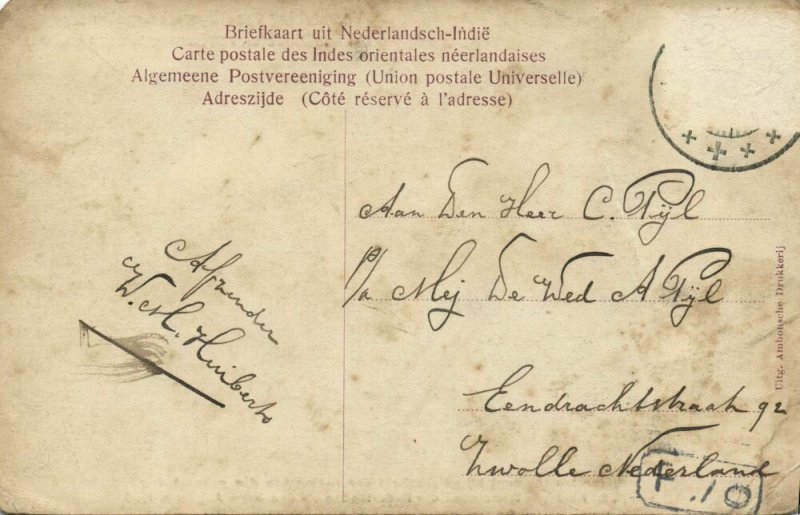 Briefkaart uit Nederlandsch-Indië
Carte postale des Indes orientales néerlandaises
Algemeene Postvereeniging (Union postale Universelle)
Adreszijde (Côté réservé à l'adresse)
Afzender
W. M. Huiberts
Aan Den Heer C. Pijl
p/a Mej De Wed A Pijl
Eendrachtstraat 92
Zwolle Nederland
Uitg. Ambonsche Drukkerij